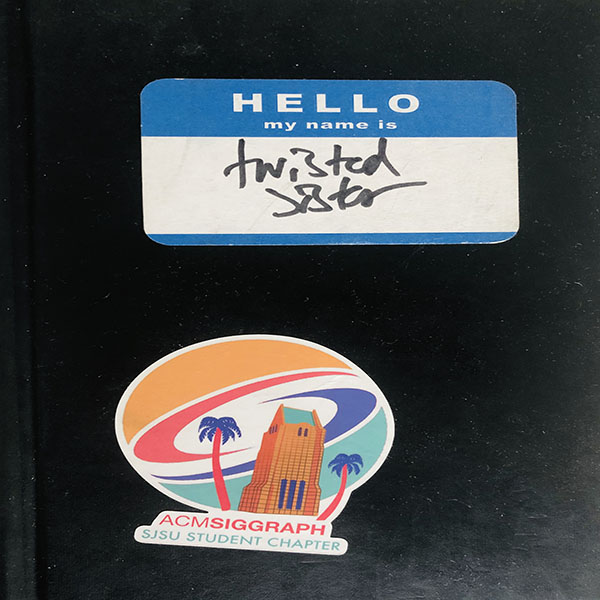 HELLO
my name is
twisted
sister
ACMSIGGRAPH
SJSU STUDENT CHAPTER